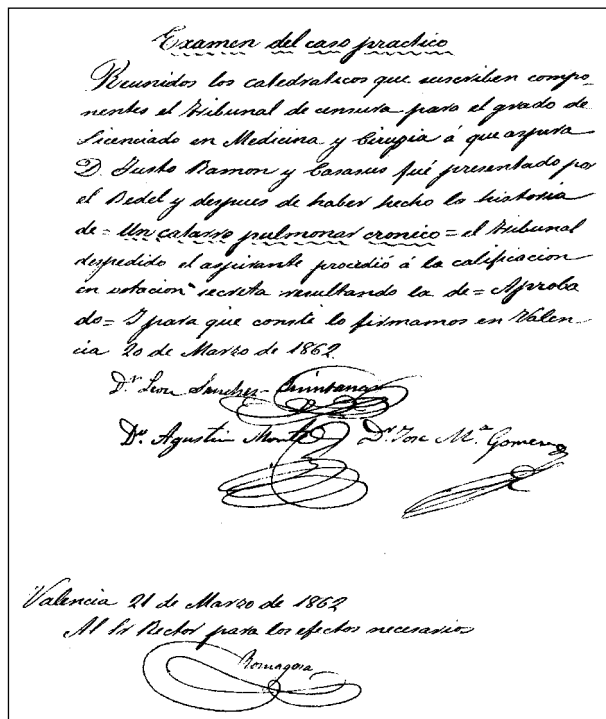 Examen del caso practico
Reunidos los catedraticos que suscriben compo-
nentes el Tribunal de censura para el grado de
Licenciado en Medicina y Cirugia á que aspira
D. Justo Ramon y Casasus fué presentado por
el Bedel y despues de haber hecho la historia
de = Un catarro pulmonar cronico = el Tribunal
despedido el aspirante procedió á la calificacion
en votacion secreta resultando la de = Aproba
do = Y para que conste lo firmamos en Valen-
cia 20 de Marzo de 1862.
Dr. Leon Sanchez-Quintanar
Dr. Agustin Monte Dr. Jose Mª Gomez
Valencia 21 de Marzo de 1862
Al Sr Rector para los efectos necesarios
Romagosa